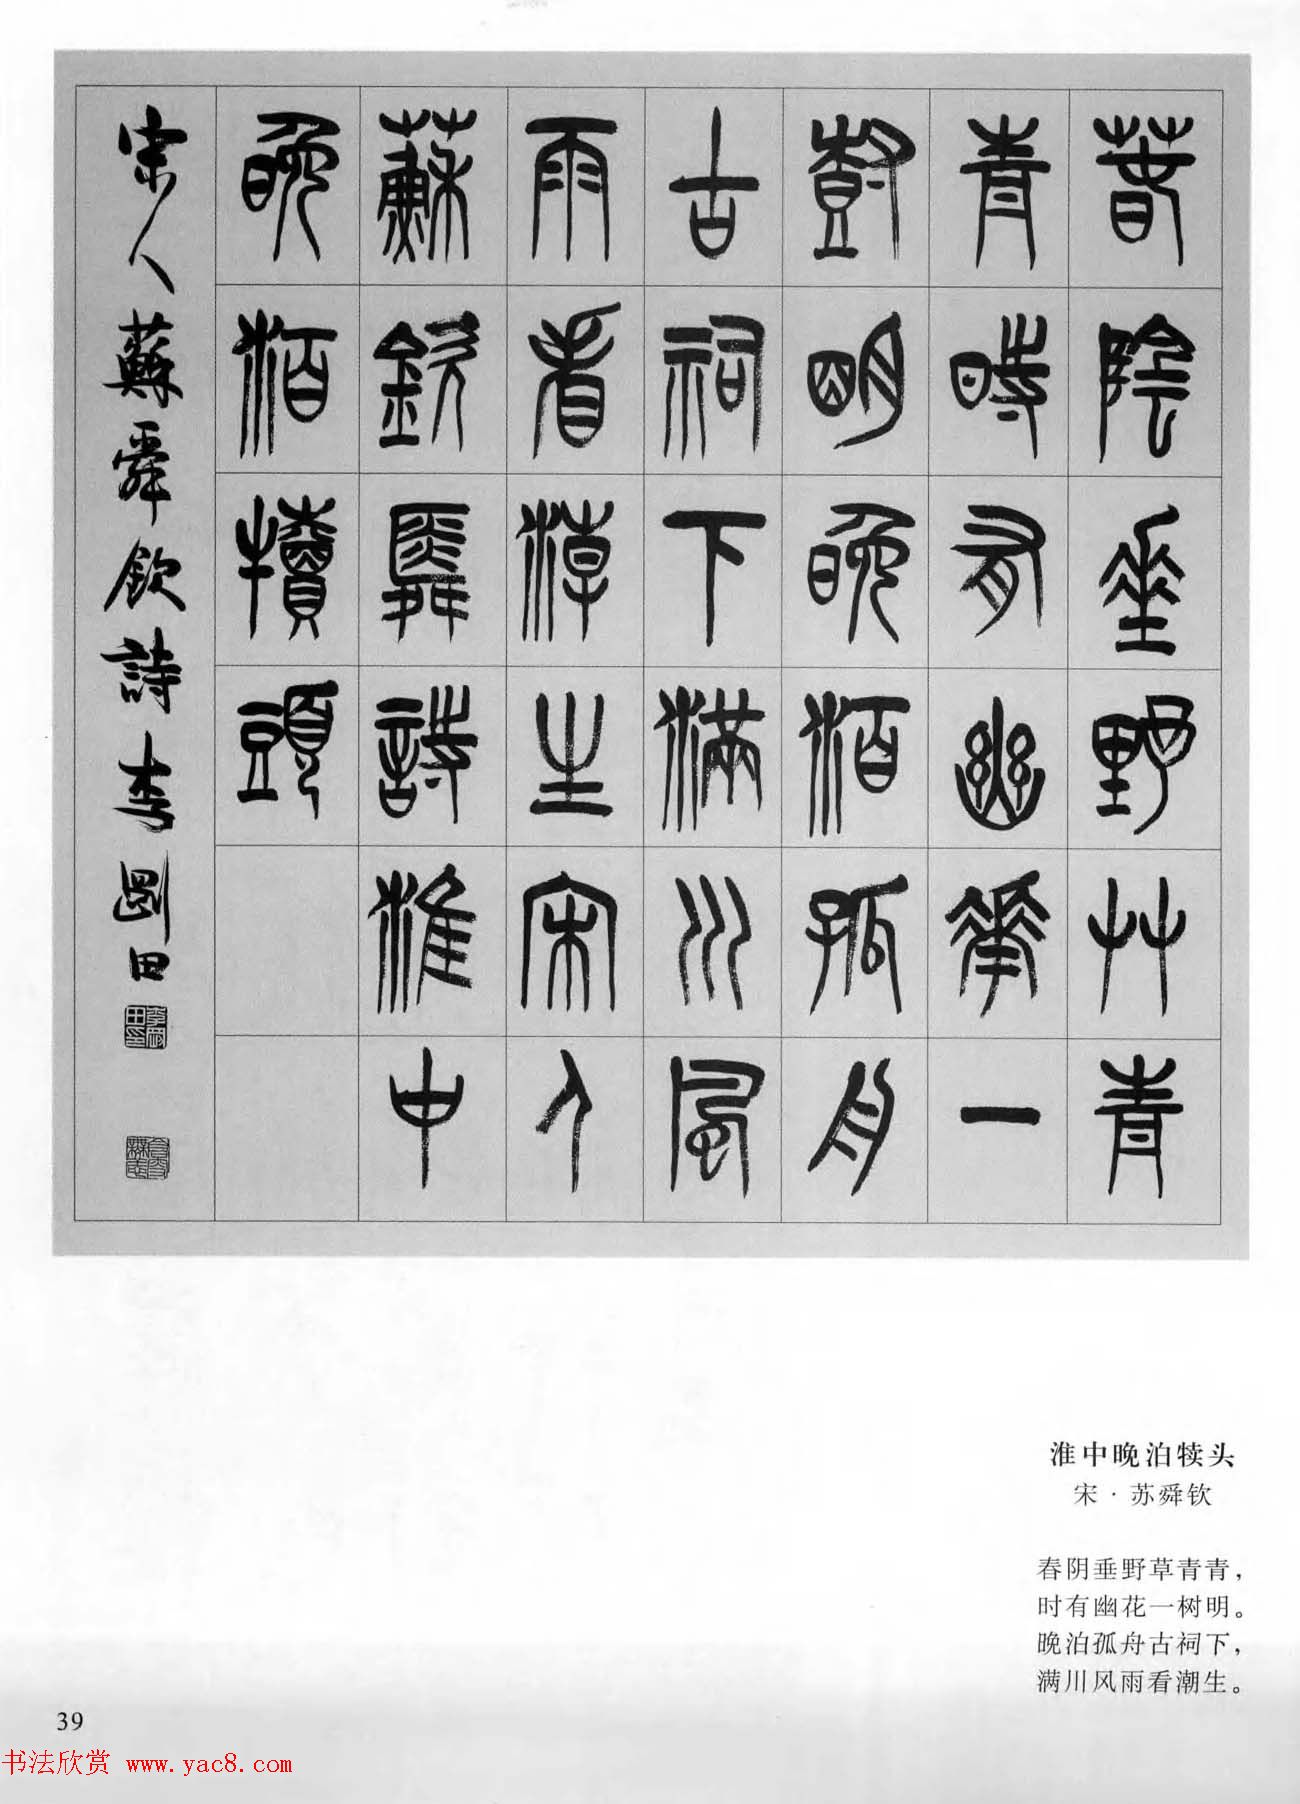 春陰垂野艸青
青時有幽華一
樹明晚泊孤舟
古祠下滿川風
雨看潮生宋人
蘇欽舜詩淮中
晚泊犢頭
宋人蘇舜欽詩李剛田
李剛田印
淮中晚泊犊头
宋·苏舜钦
春阴垂野草青青，
时有幽花一树明。
晚泊孤舟古祠下，
满川风雨看潮生。
39
书法欣赏 www.yac8.com